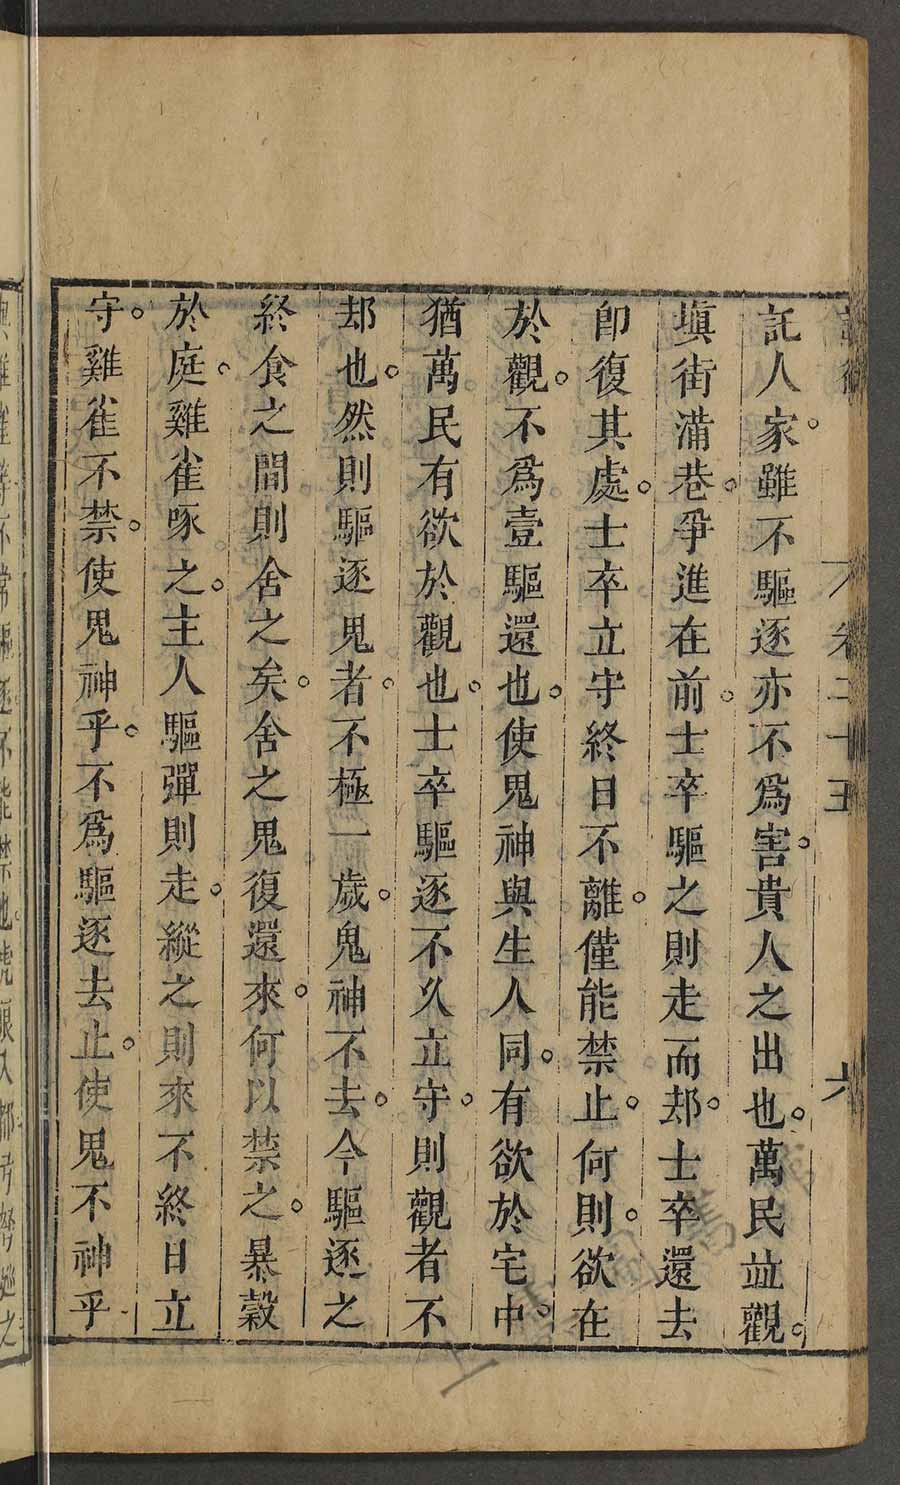 卷二十五　六
託人家。雖不驅逐亦不爲害。貴人之出也。萬民竝觀。
塡街滿巷。爭進在前。士卒驅之則走而却。士卒還去
卽復其處。士卒立守終日不離。僅能禁止。何則。欲在
於觀。不爲壹驅還也。使鬼神與生人同。有欲於宅中。
猶萬民有欲於觀也。士卒驅逐不久立守。則觀者不
却也。然則驅逐鬼者。不極一歲。鬼神不去。今驅逐之
終食之間則舍之矣。舍之鬼復還來。何以禁之。暴穀
於庭。雞雀啄之。主人驅彈則走。縱之則來不終日立
守。雞雀不禁。使鬼神乎。不爲驅逐去止。使鬼不神乎